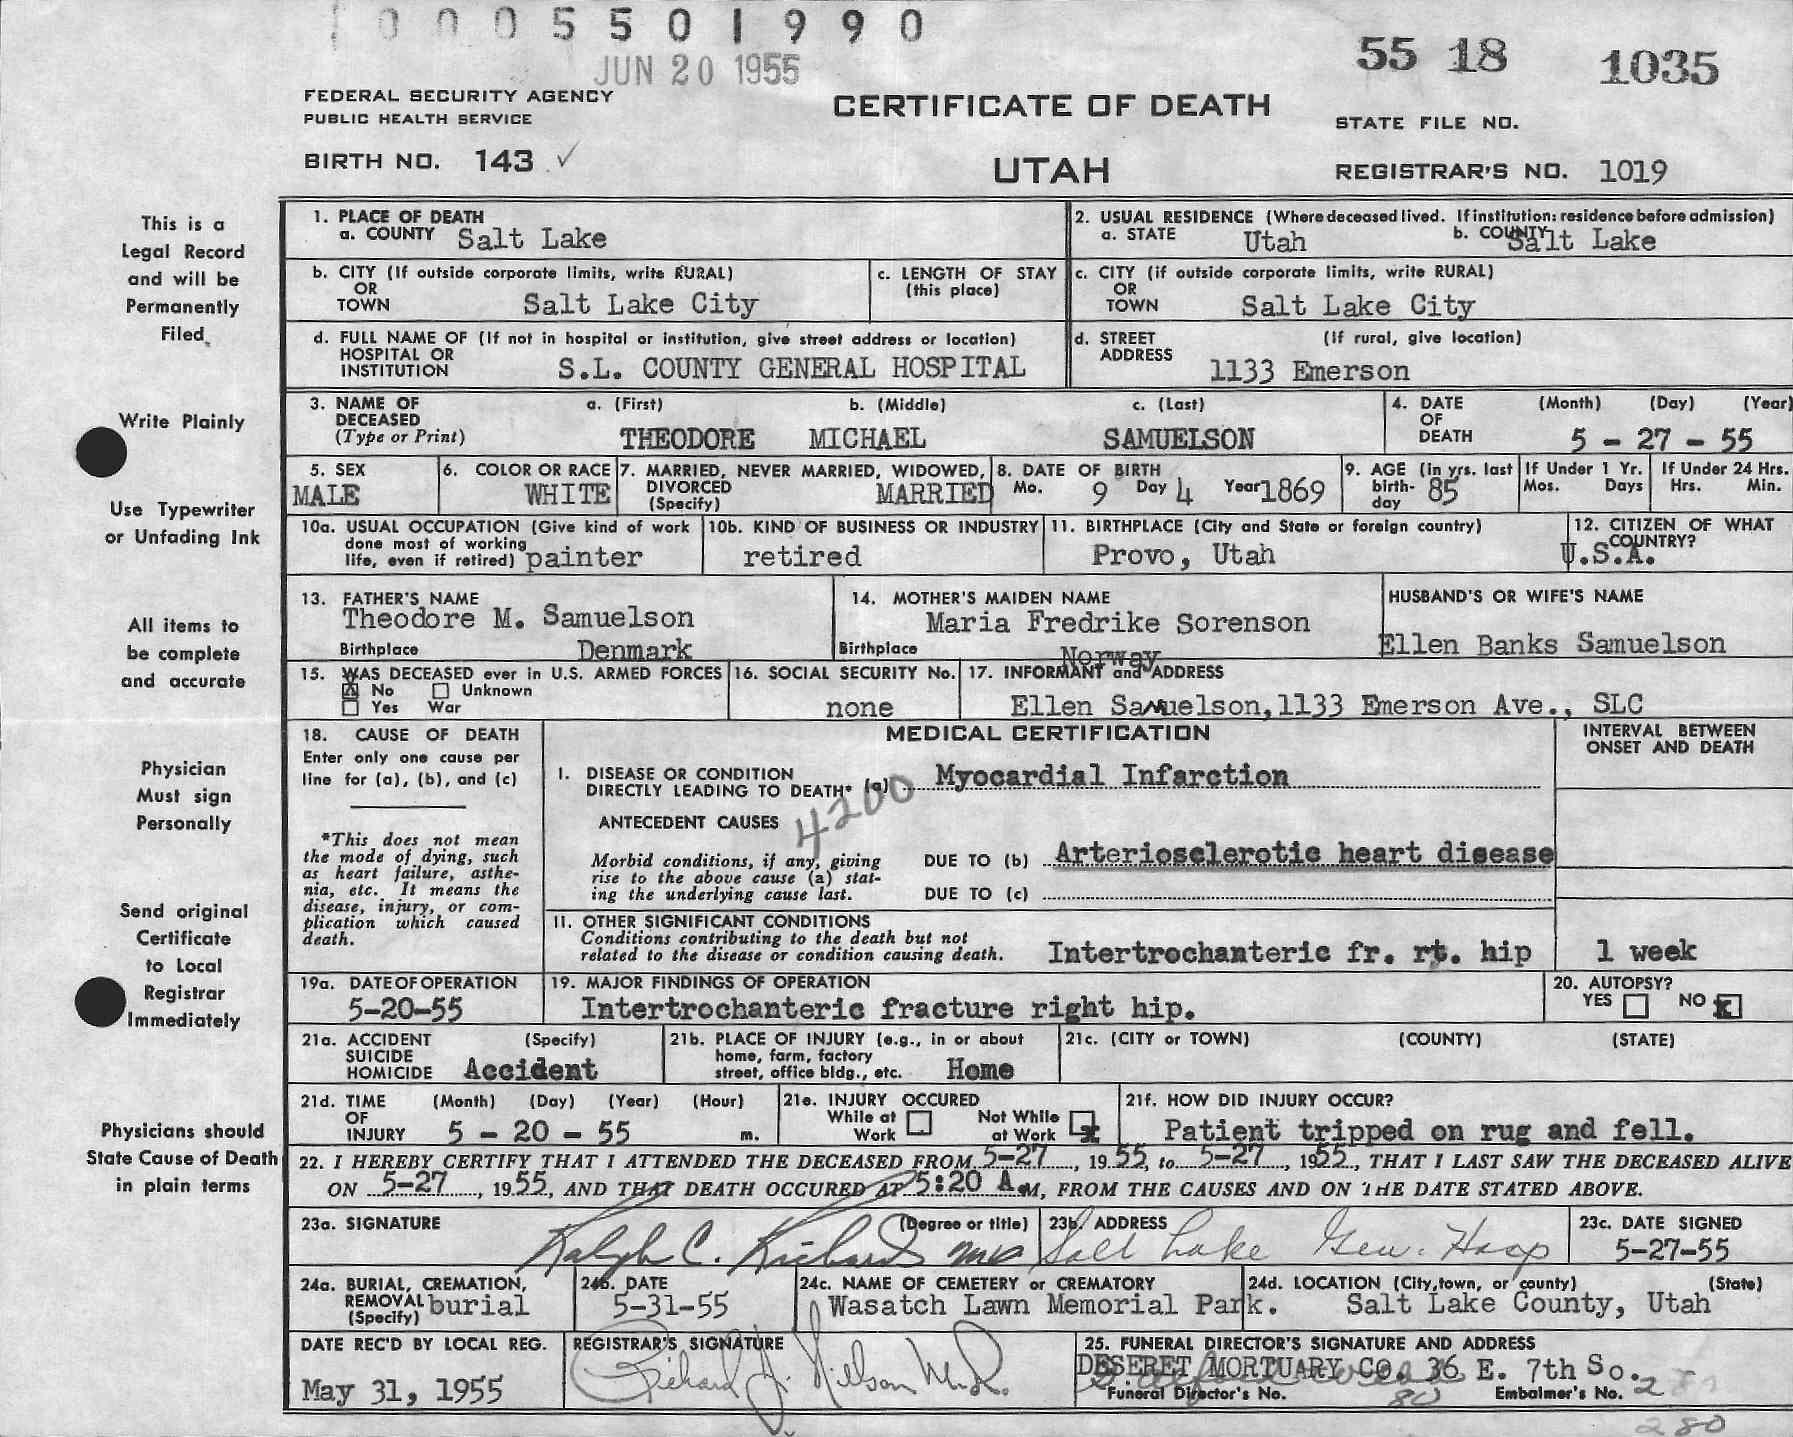 10005501990
JUN 20 1955
55 18 1035
FEDERAL SECURITY AGENCY
PUBLIC HEALTH SERVICE
CERTIFICATE OF DEATH
STATE FILE NO.
BIRTH NO. 143 ✓
UTAH
REGISTRAR'S NO. 1019
This is a
Legal Record
and will be
Permanently
Filed.
Write Plainly
Use Typewriter
or Unfading Ink
All items to
be complete
and accurate
Physician
Must sign
Personally
Send original
Certificate
to Local
Registrar
Immediately
Physicians should
State Cause of Death
in plain terms
1. PLACE OF DEATH
a. COUNTY Salt Lake
2. USUAL RESIDENCE (Where deceased lived. If institution: residence before admission)
a. STATE Utah b. COUNTY Salt Lake
b. CITY (If outside corporate limits, write RURAL)
OR
TOWN Salt Lake City
c. LENGTH OF STAY
(this place)
c. CITY (if outside corporate limits, write RURAL)
OR
TOWN Salt Lake City
d. FULL NAME OF (If not in hospital or institution, give street address or location)
HOSPITAL OR
INSTITUTION S.L. COUNTY GENERAL HOSPITAL
d. STREET (If rural, give location)
ADDRESS 1133 Emerson
3. NAME OF a. (First) b. (Middle) c. (Last)
DECEASED
(Type or Print) THEODORE MICHAEL SAMUELSON
4. DATE (Month) (Day) (Year)
OF
DEATH 5 - 27 - 55
5. SEX
MALE
6. COLOR OR RACE
WHITE
7. MARRIED, NEVER MARRIED, WIDOWED,
DIVORCED MARRIED
(Specify)
8. DATE OF BIRTH
Mo. 9 Day 4 Year 1869
9. AGE (in yrs. last
birth- 85
day
If Under 1 Yr.
Mos. Days
If Under 24 Hrs.
Hrs. Min.
10a. USUAL OCCUPATION (Give kind of work
done most of working
life, even if retired) painter
10b. KIND OF BUSINESS OR INDUSTRY
retired
11. BIRTHPLACE (City and State or foreign country)
Provo, Utah
12. CITIZEN OF WHAT
COUNTRY?
U.S.A.
13. FATHER'S NAME
Theodore M. Samuelson
Birthplace Denmark
14. MOTHER'S MAIDEN NAME
Maria Fredrike Sorenson
Birthplace Norway
HUSBAND'S OR WIFE'S NAME
Ellen Banks Samuelson
15. WAS DECEASED ever in U.S. ARMED FORCES
No Unknown
Yes War
16. SOCIAL SECURITY No.
none
17. INFORMANT and ADDRESS
Ellen Samuelson, 1133 Emerson Ave., SLC
18. CAUSE OF DEATH
Enter only one cause per
line for (a), (b), and (c)
*This does not mean
the mode of dying, such
as heart failure, asthe-
nia, etc. It means the
disease, injury, or com-
plication which caused
death.
MEDICAL CERTIFICATION
INTERVAL BETWEEN
ONSET AND DEATH
I. DISEASE OR CONDITION
DIRECTLY LEADING TO DEATH* (a) Myocardial Infarction
4200
ANTECEDENT CAUSES
Morbid conditions, if any, giving
rise to the above cause (a) stat-
ing the underlying cause last.
DUE TO (b) Arteriosclerotic heart disease
DUE TO (c)
II. OTHER SIGNIFICANT CONDITIONS
Conditions contributing to the death but not
related to the disease or condition causing death.
Intertrochanteric fr. rt. hip 1 week
19a. DATE OF OPERATION
5-20-55
19. MAJOR FINDINGS OF OPERATION
Intertrochanteric fracture right hip.
20. AUTOPSY?
YES NO x
21a. ACCIDENT (Specify)
SUICIDE
HOMICIDE Accident
21b. PLACE OF INJURY (e.g., in or about
home, farm, factory
street, office bldg., etc. Home
21c. (CITY or TOWN) (COUNTY) (STATE)
21d. TIME (Month) (Day) (Year) (Hour)
OF
INJURY 5 - 20 - 55 m.
21e. INJURY OCCURED
While at Work Not While at Work x
21f. HOW DID INJURY OCCUR?
Patient tripped on rug and fell.
22. I HEREBY CERTIFY THAT I ATTENDED THE DECEASED FROM 5-27, 1955, to 5-27, 1955, THAT I LAST SAW THE DECEASED ALIVE
ON 5-27, 1955, AND THAT DEATH OCCURED AT 5:20 A.M, FROM THE CAUSES AND ON THE DATE STATED ABOVE.
23a. SIGNATURE (Degree or title)
Ralph C. Richards MD
23b. ADDRESS
Salt Lake Gen. Hosp
23c. DATE SIGNED
5-27-55
24a. BURIAL, CREMATION,
REMOVAL burial
(Specify)
24b. DATE
5-31-55
24c. NAME OF CEMETERY or CREMATORY
Wasatch Lawn Memorial Park.
24d. LOCATION (City, town, or county) (State)
Salt Lake County, Utah
DATE REC'D BY LOCAL REG.
May 31, 1955
REGISTRAR'S SIGNATURE
Richard J. Nilson M.D.
25. FUNERAL DIRECTOR'S SIGNATURE AND ADDRESS
DESERET MORTUARY CO. 36 E. 7th So.
Funeral Director's No. 80 Embalmer's No. 2
280